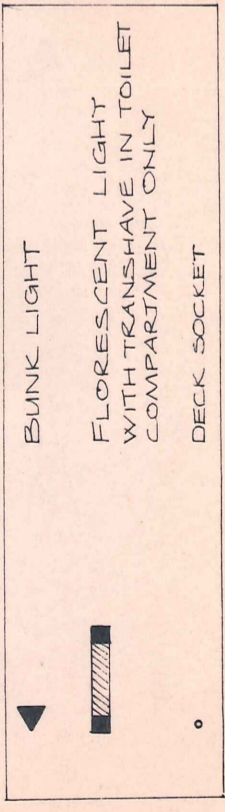 BUNK LIGHT
FLORESCENT LIGHT
WITH TRANSHAVE IN TOILET
COMPARTMENT ONLY
DECK SOCKET